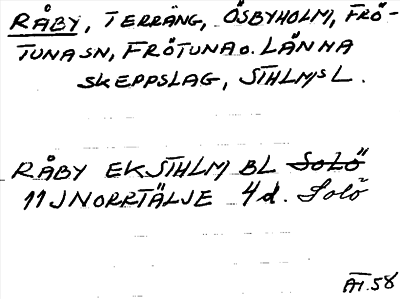 RÅBY, TERRÄNG, ÖSBYHOLM, FRÖ-
TUNA SN, FRÖTUNA O. LÄNNA
SKEPPSLAG, STHLMS L.
RÅBY EK STHLM BL SOLÖ
11J NORRTÄLJE 4d. Solö
AT.58